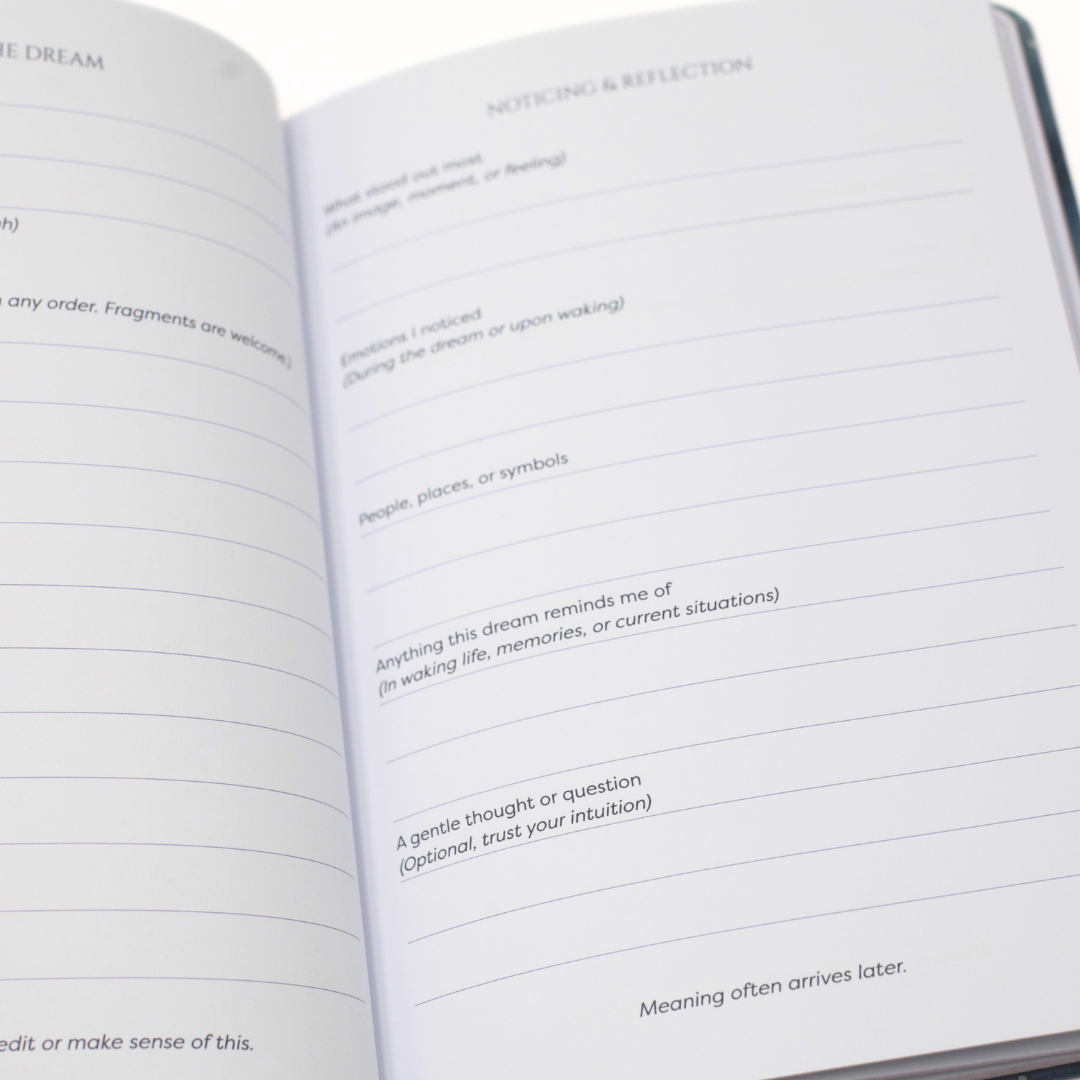 THE DREAM
any order. Fragments are welcome.)
edit or make sense of this.
NOTICING & REFLECTION
What stood out most
(An image, moment, or feeling)
Emotions I noticed
(During the dream or upon waking)
People, places, or symbols
Anything this dream reminds me of
(In waking life, memories, or current situations)
A gentle thought or question
(Optional, trust your intuition)
Meaning often arrives later.